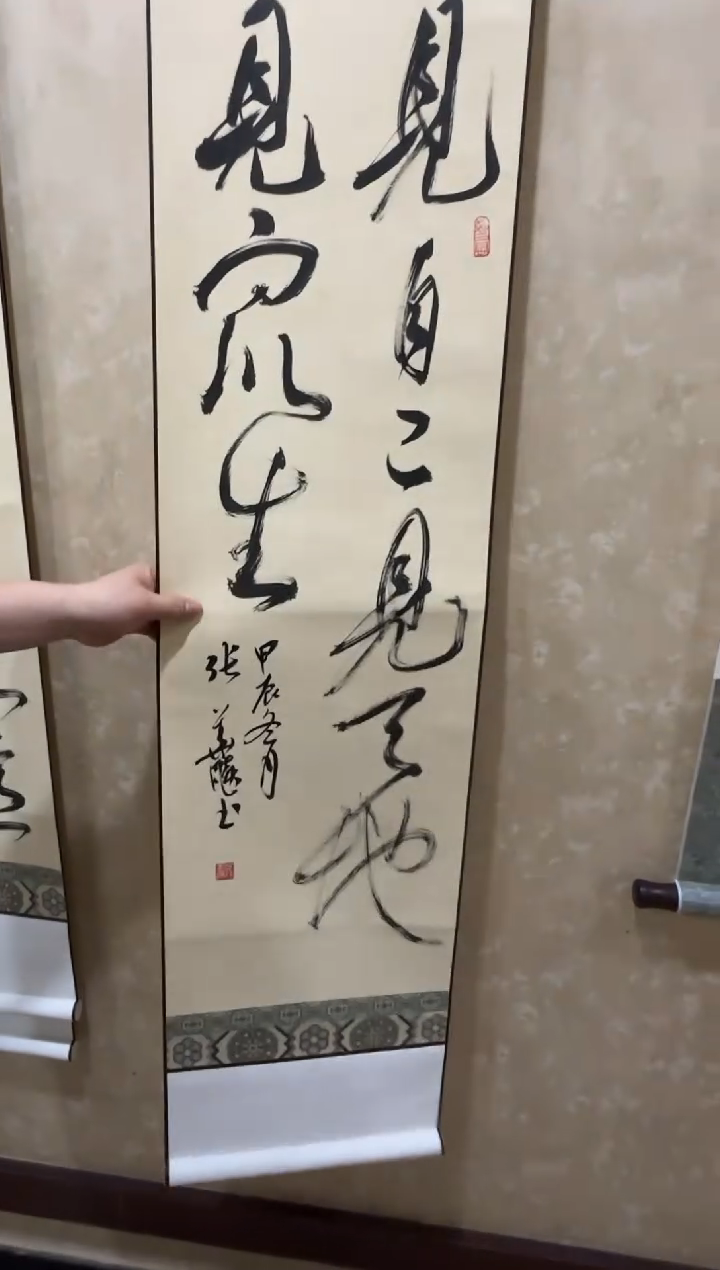 見自己見天地
見眾生
甲辰冬月
张
书